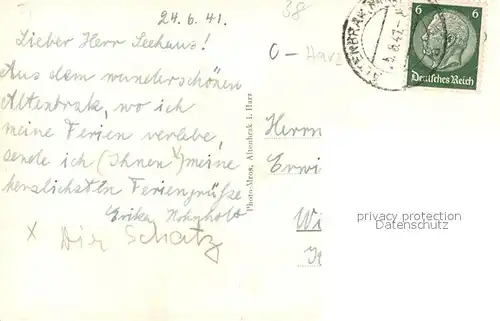 24.6.41.
38
Lieber Herr Seehaus!
Aus dem wunderschönen
Altenbrak, wo ich
meine Ferien verlebe,
sende ich (Ihnen x) meine
herzlichsten Feriengrüße
Erika
x Dir Schatz
Photo-Mros, Altenbrak i. Harz
O - Harz
ALTENBRAK
6
Deutsches Reich
Herrn
Erwi
Wi
privacy protection
Datenschutz